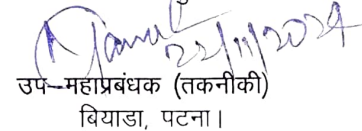 22/11/2024
उप–महाप्रबंधक (तकनीकी)
बियाडा, पटना।